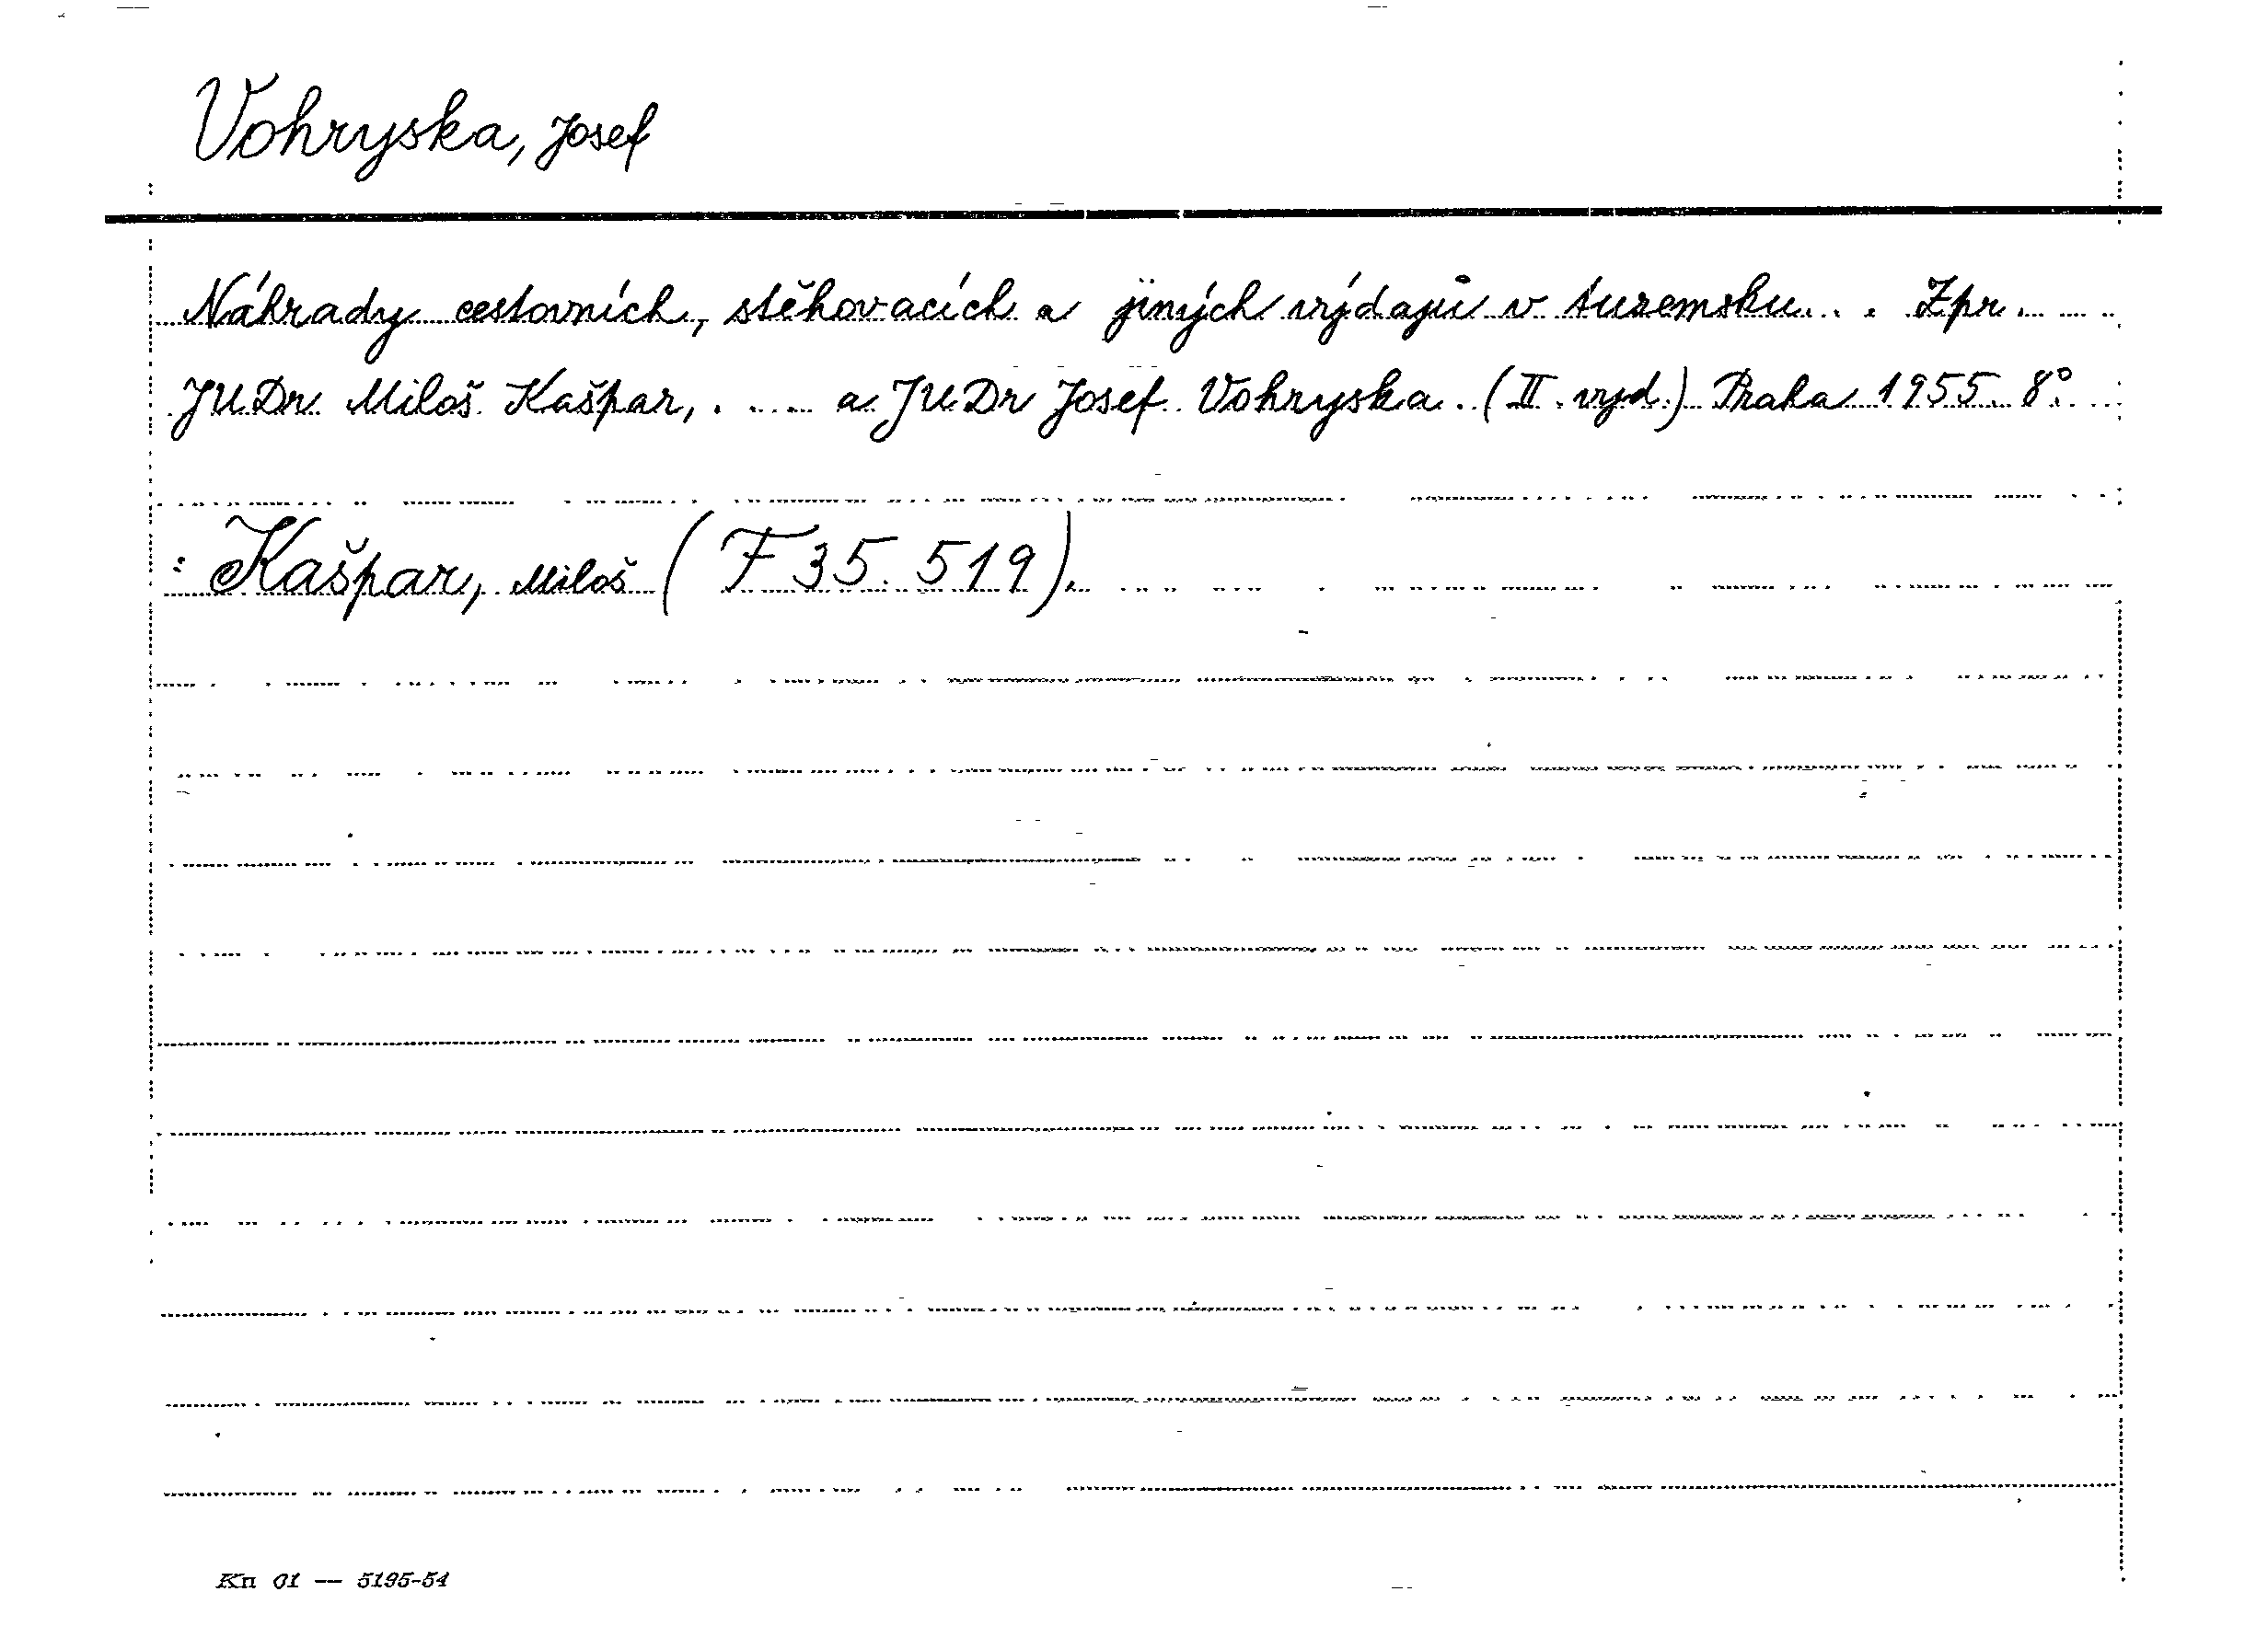 Vohryska, Josef
Náhrady cestovních, stěhovacích a jiných výdajů v tuzemsku... Zpr.
JUDr Miloš Kašpar, .... a JUDr Josef Vohryska. (II. vyd.) Praha 1955. 8°.
: Kašpar, Miloš (F 35.519).
Kn 01 — 5195-54